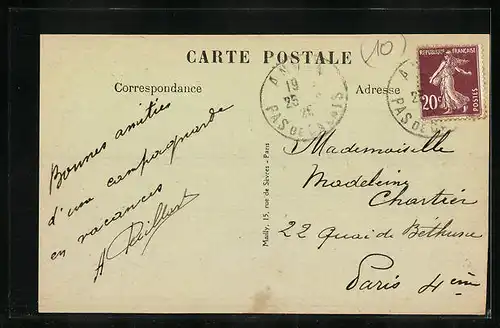 CARTE POSTALE
(10)
Correspondance
Adresse
RÉPUBLIQUE FRANÇAISE
20c
POSTES
19
25
PAS DE CALAIS
Bonnes amitiés
d'une campagnarde
en vacances
A
Mailly, 15, rue de Sèvres - Paris
Mademoiselle
Madeleine
Chartier
22 Quai de Béthune
Paris 4ème